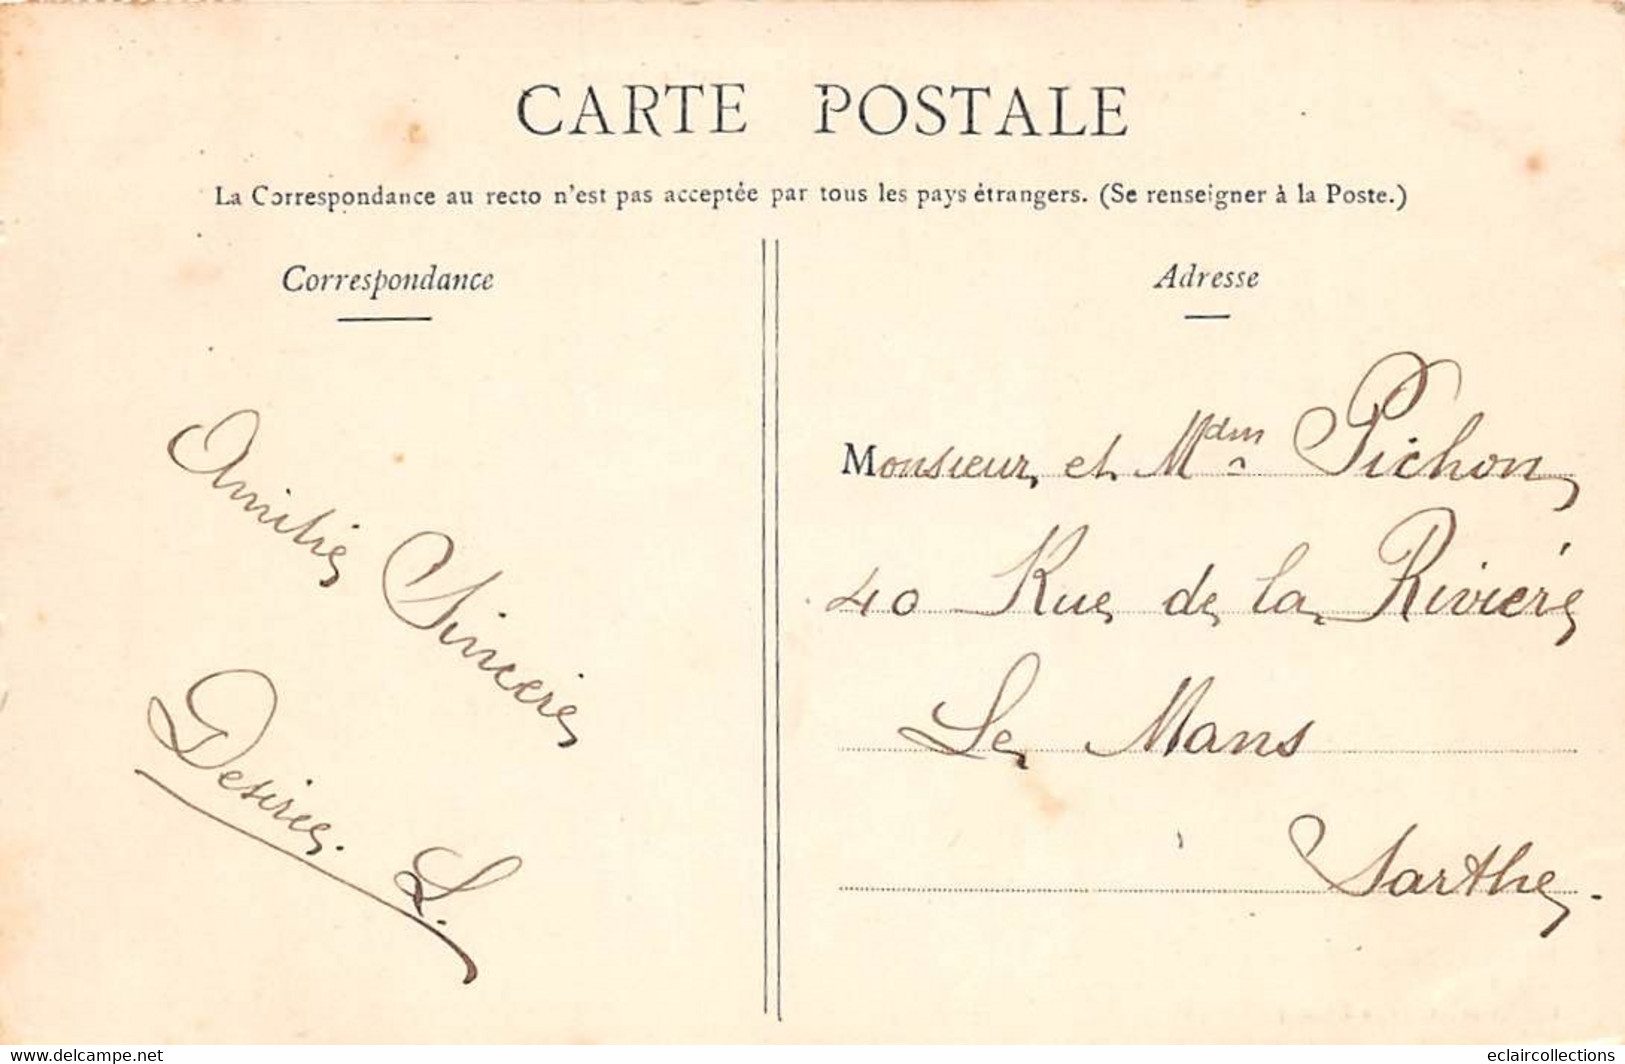 CARTE POSTALE
La Correspondance au recto n'est pas acceptée par tous les pays étrangers. (Se renseigner à la Poste.)
Correspondance
Amitié Sincère
Desirée. L.
Adresse
Monsieur et Mdm Pichon
40 Rue de la Riviére
Le Mans
Sarthe.
www.delcampe.net
eclaircollections